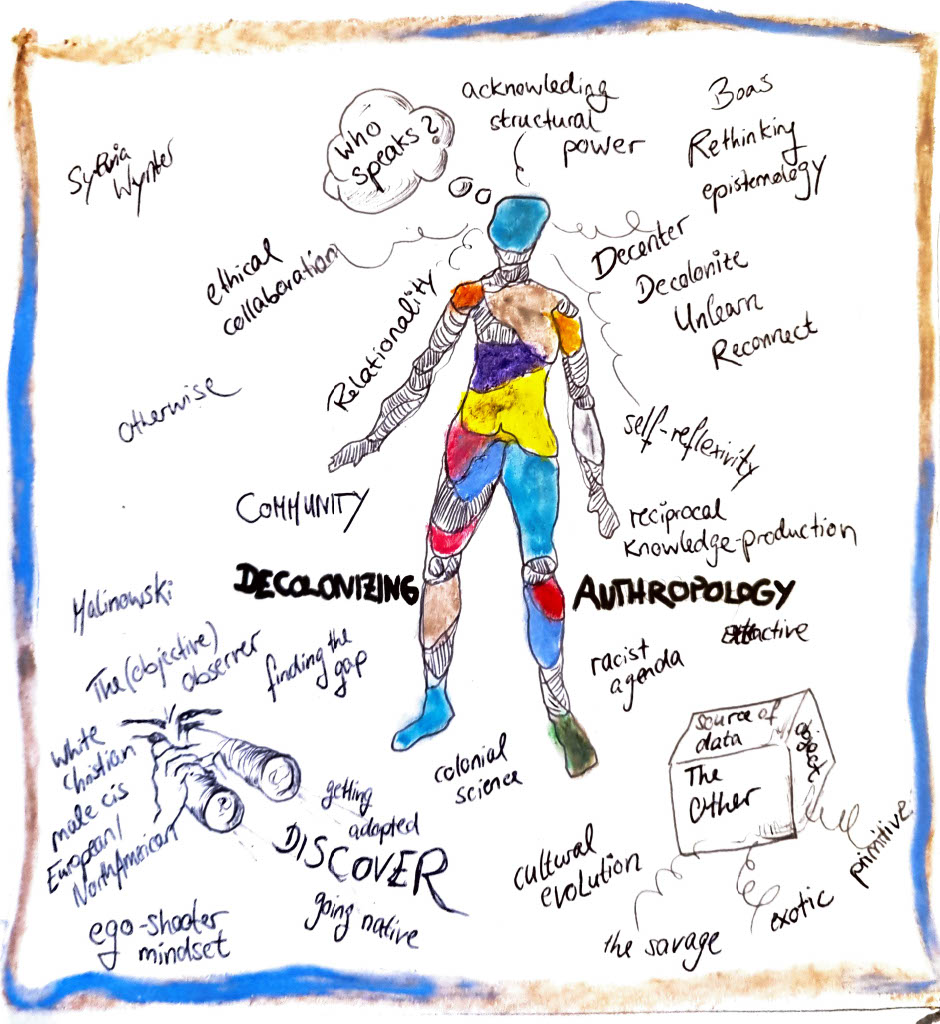 who
speaks?
acknowleding
structural
power
Boas
Rethinking
epistemology
Sylvia
Wynter
ethical
collaboration
Relationality
Decenter
Decolonize
Unlearn
Reconnect
otherwise
self-reflexivity
COMMUNITY
reciprocal
knowledge-production
DECOLONIZING AUTHROPOLOGY
Malinowski
The (objective)
observer
finding the
gap
racist
agenda
white
Christian
male cis
European/
NorthAmerican
getting
adopted
DISCOVER
going native
ego-shooter
mindset
colonial
science
cultural
evolution
source of
data
object
The
Other
the savage
exotic
primitive